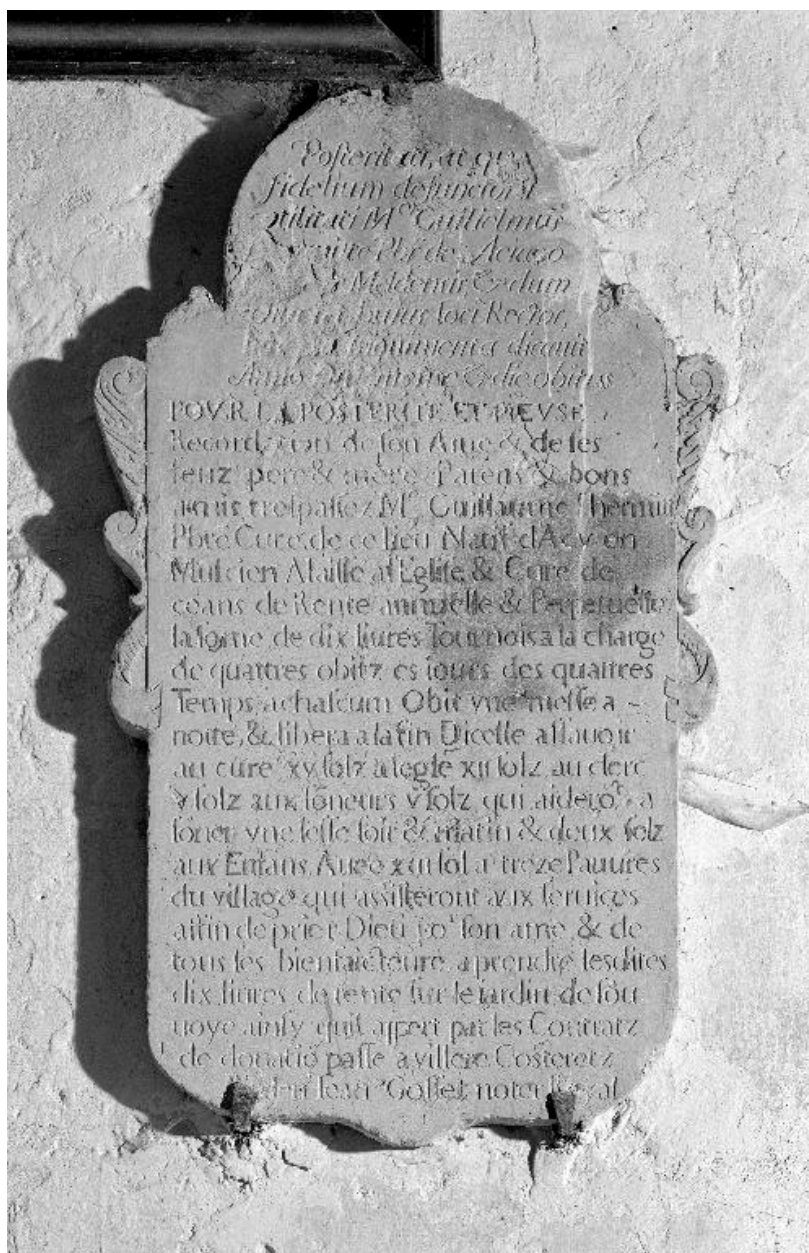 Posteritati, atque
fidelium defunctorū
vtilitati M.ͬ Guillielmus
Pbr de Aciaco
Meldemsis, & dum
huius loci Rector,
monumenta dicauit
Anno & die obitus
POVR LA POSTERITE ET PIEVSE
Recordation de son Ame & de ses
feuz pere & mere Parens & bons
amis trespassez Mͤ Guillaume Shermite
Pbre Cure de ce lieu Natif d'Acy en
Mulcien A laissé a l'Eglise & Cure de
ceans de Rente annuelle & Perpetuelle
la sōme de dix liures Tournois a la charge
de quattres obitz es iours des quattres
Temps a chascum Obit vne messe a
notte, & libera a la fin Dicelle assauoir
au curé xv solz a leglē xii solz au clerc
v solz aux sōneurs v solz qui a
sōner vne lesse soir & matin & deux solz
aux Enfans Auec xiii sol a treze Pauures
du village qui assisteront aux seruices
affin de prier Dieu poʳ son ame & de
tous ses bienfaicteurs a prendre lesdites
dix liures de rente sur le jardin de
uoye ainsy quil appert par les Contratz
de donatiō passe a villers Costeretz
Jean Gosset